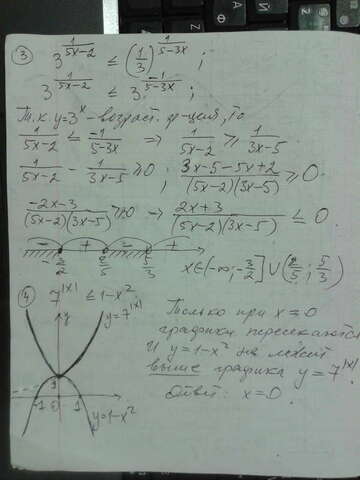 ③ 3^(1/(5x-2)) ≤ (1/3)^(1/(5-3x)) ;
3^(1/(5x-2)) ≤ 3^(-1/(5-3x)) ;
Т.к. y=3^x - возраст. ф-ция, то
1/(5x-2) ≤ -1/(5-3x) ⇒ 1/(5x-2) ≥ 1/(3x-5)
1/(5x-2) - 1/(3x-5) ≥ 0 ; (3x-5-5x+2)/((5x-2)(3x-5)) ≥ 0
(-2x-3)/((5x-2)(3x-5)) ≥ 0 → (2x+3)/((5x-2)(3x-5)) ≤ 0
- + - +
-3/2 2/5 5/3
x∈(-∞; -3/2]∪(2/5; 5/3)
④ 7^|x| ≤ 1-x²
y=7^|x|
y
1
-1 0 1 x
y=1-x²
Только при x=0
графики пересекаются
и y=1-x² не лежит
выше графика y=7^|x|.
Ответ: x=0.